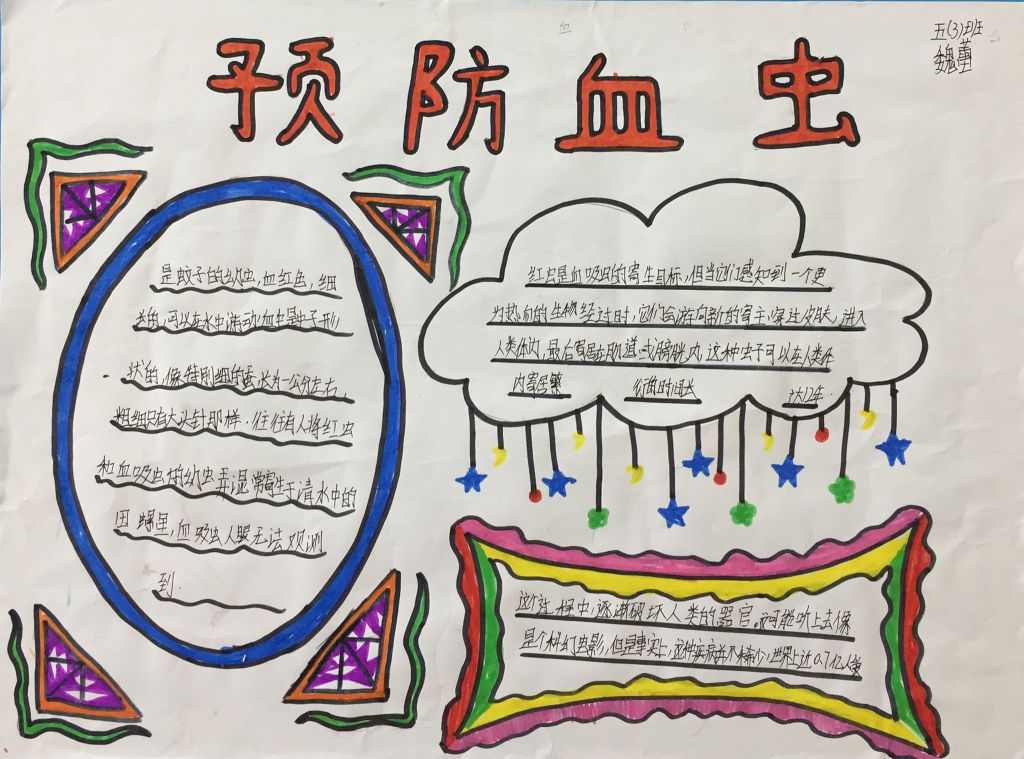 预防血虫
五(3)班
魏董
是蚊子的幼虫,血红色,细
类的,可以在水中游动血虫是蚊子形
状的,像特别细的蚕,长为一公分左右,
粗细只有大头针那样.往往有人将红虫
和血吸虫的幼虫弄混常寄生于清水中的
田螺里,血吸虫人眼无法观测
到.
红虫是血吸虫的寄生目标,但当它们感知到一个更
为热血的生物经过时,它们会游向新的寄主,穿过皮肤,进入
人类体内,最后寄居在肠道或膀胱内,这种虫子可以在人类体
内寄居繁 衍的时间长 达12年.
这个过程中,逐渐破坏人类的器官。可能听上去像
是个科幻电影,但是事实上,这种疾病并不稀少,世界上近0.7亿人